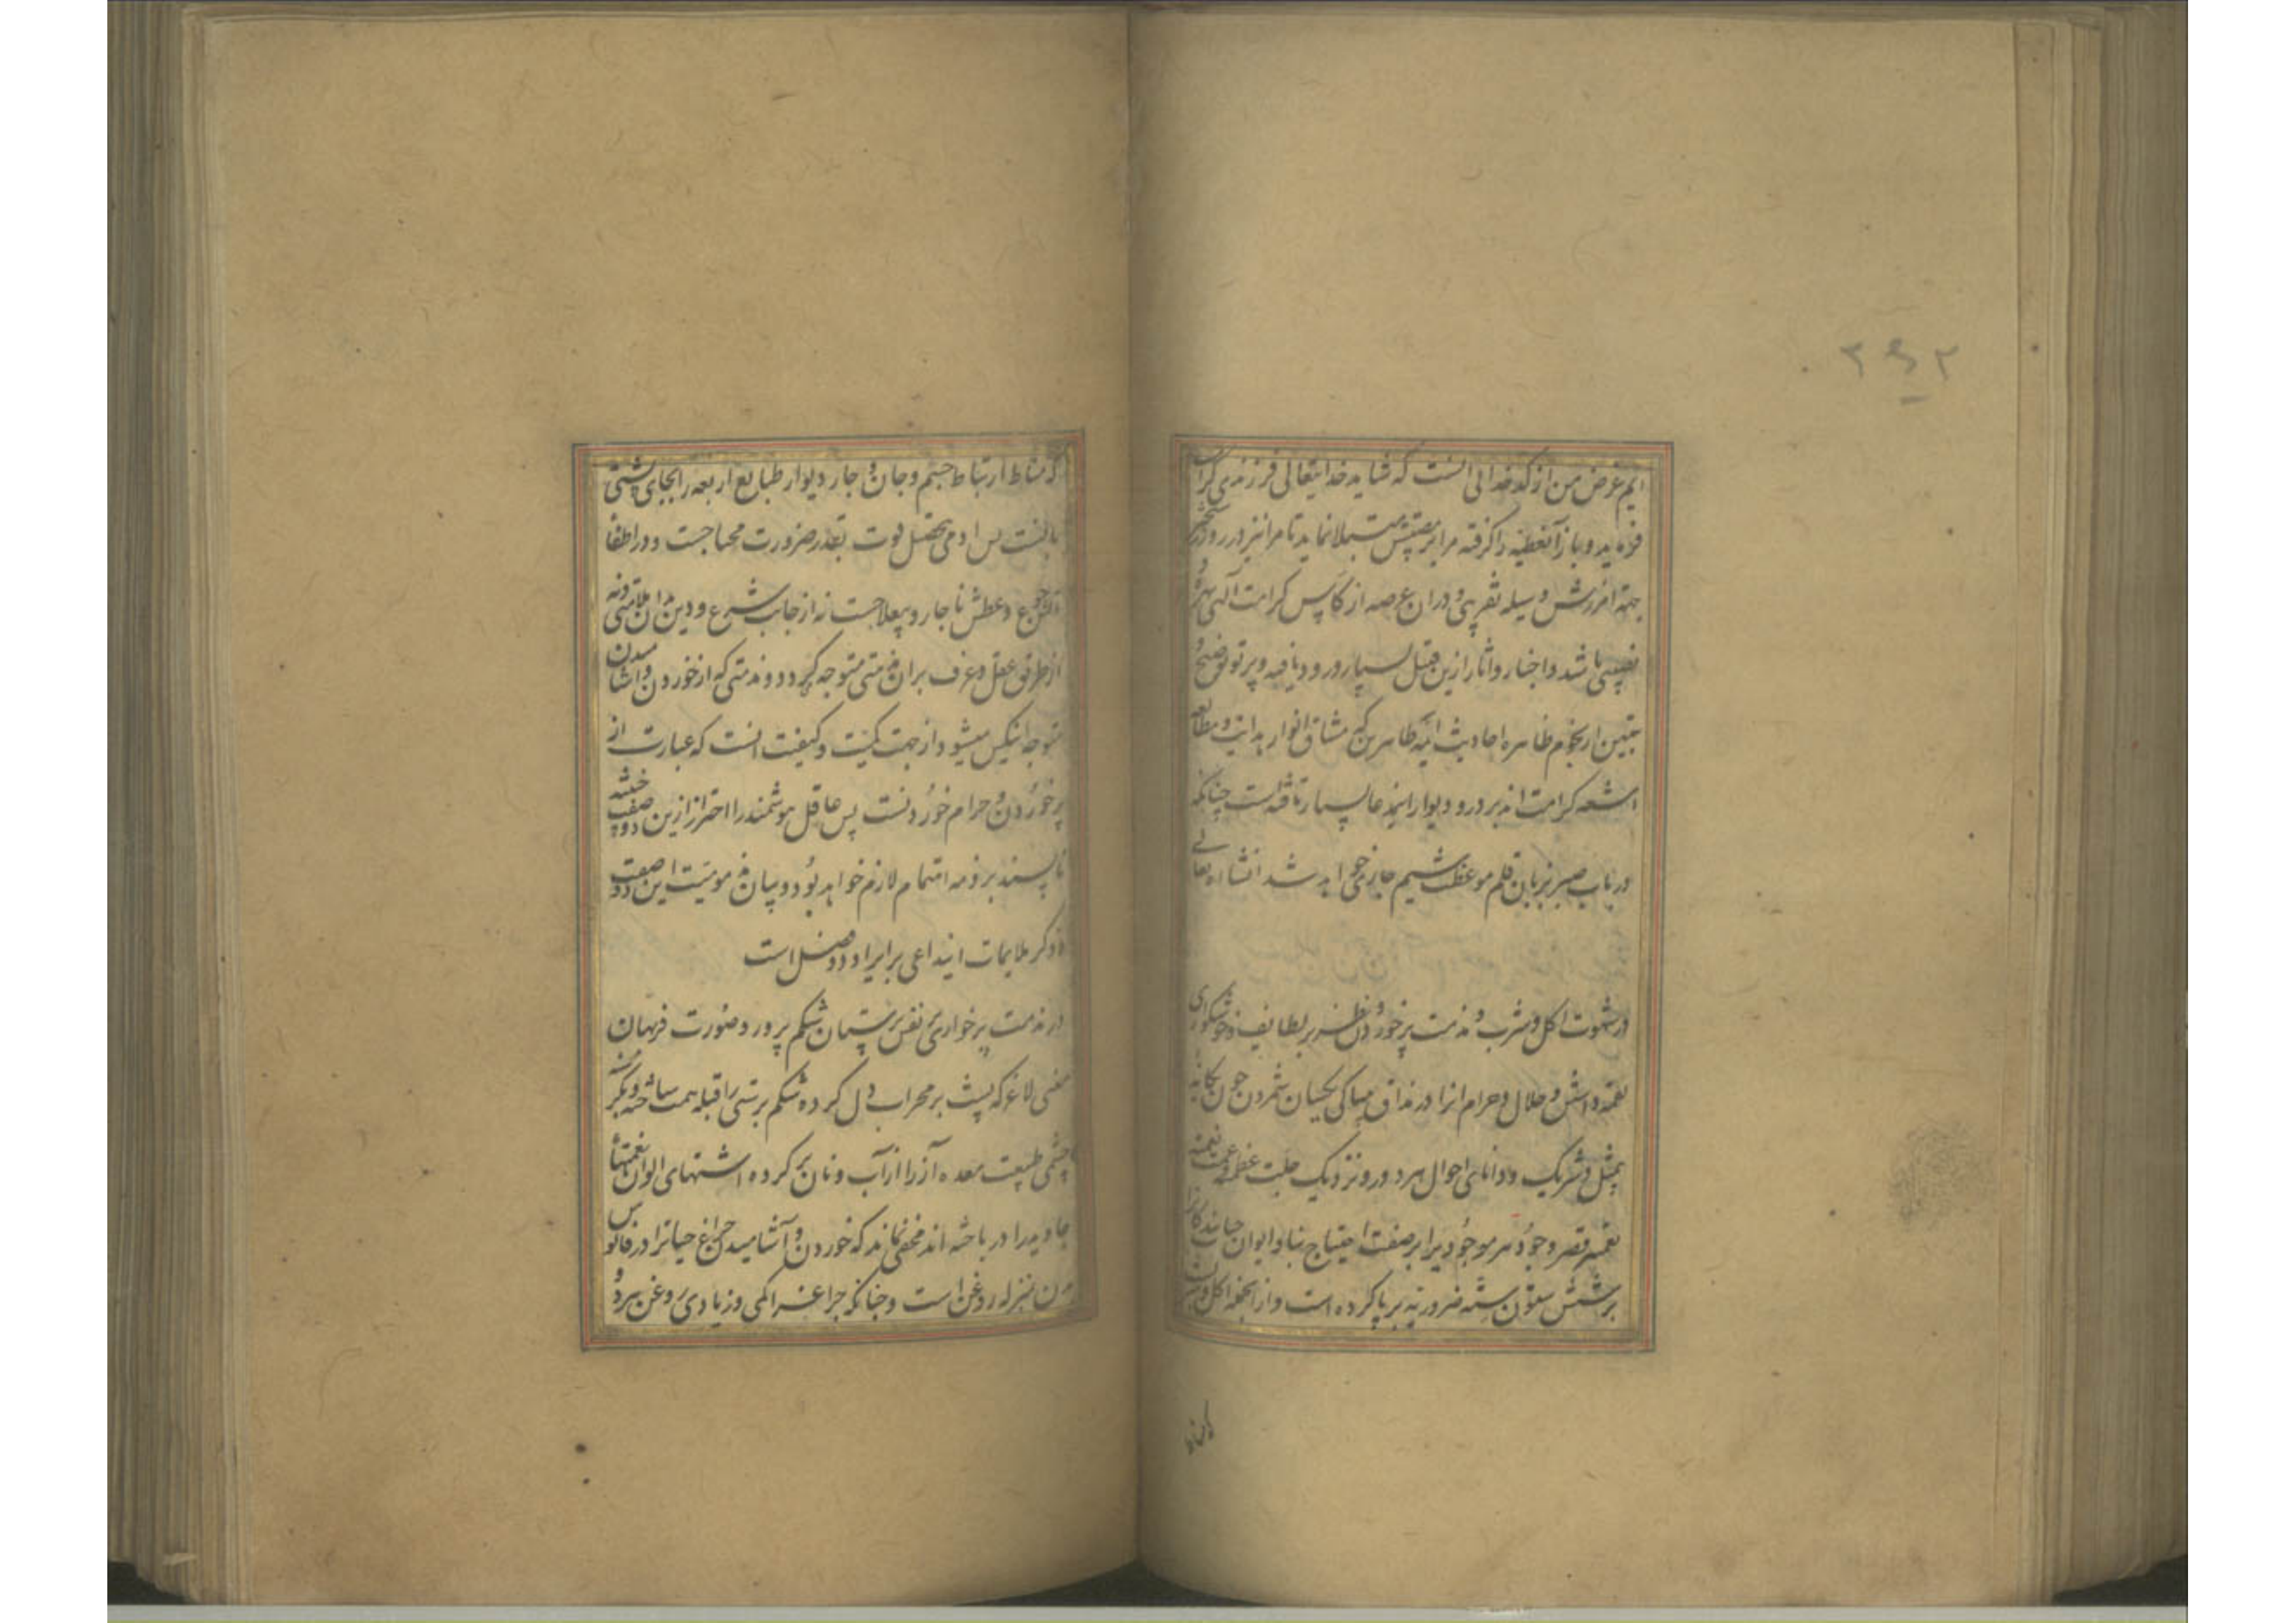 ایم غرض من از کدخدائی انست که شاید خدایتعالی فرزندی کرامت
فرماید و باز آنعطیه را کرفته مرا بمصیبتش مبتلا نماید تا مرا نیز در روز
جهة امرزش وسیله تقریبی و دران عرصه از کاس کرامت آلهی بهره و
نصیبی باشد و اخبار و اثار ازین قبیل بسیار ورود یافته و پرتو توضیح و
تبیین از نجوم ظاهره احادیث ائمه طاهرین که مشاق انوار هدایت و مطالع
اشعه کرامت اند بر در و دیوار اینمدعا بسیار تافته است چنانکه
در باب صبر بزبان قلم موعظت شیم جاری خواهد شد انشاء اله تعالی
در شهوت اکل و شرب و مذمت پرخوردن و نظر بر لطایف و خوشکواری
لقمه داشتن و حلال و حرام انرا در مذاق بیباکی یکسان شمردن چون یکانه
بیمثل و شریک و دانای احوال هر دور و نزدیک جلت عظمته و عمت نعمته
تعمیر قصر وجود هر موجودیرا بر صفت احتیاج بنا و ایوان حیات
بر شش ستون سته ضروریه برپا کرده است و از انجمله اکل و شرب
که مناط ارتباط جسم و جان و چار دیوار طبایع اربعه را بجای پشتی
بانست پس ادمی بتحصیل قوت بقدر ضرورت محتاجست و در اطفاء
آتش جوع و عطش ناچار و بیعلاجست نه از جانب شرع و دین بر ان ملامتی و نه
از طریق عقل و عرف بران مذمتی متوجه کردد و مذمتی که از خوردن و اشامیدن
متوجه اینکس میشود از جهت کمیت و کیفیت انست که عبارت از
پر خوردن و حرام خوردنست پس عاقل هوشمند را احتراز ازین دو صفت خبیثه
ناپسند بر ذمه اهتمام لازم خواهد بود و بیان مذمومیت این دو صفت
و ذکر ملایمات اینداعی بر ایراد دو فصل است
در مذمت پرخواری نفس پرستان شکم پرور و صورت فربهان
معنی لاغر که پشت بر محراب دل کرده شکم پرستی را قبله همت ساخته و بکرسنه
چشمی طبیعت معده آز را از آب و نان پر کرده اشتهای الوان نعمتهاء
جاوید را در باخته اند مخفی نماند که خوردن و آشامیدن چراغ حیاترا در فانوس
بدن بمنزله روغن است و چنانکه چراغ را کمی و زیادی روغن هر دو
که مناط